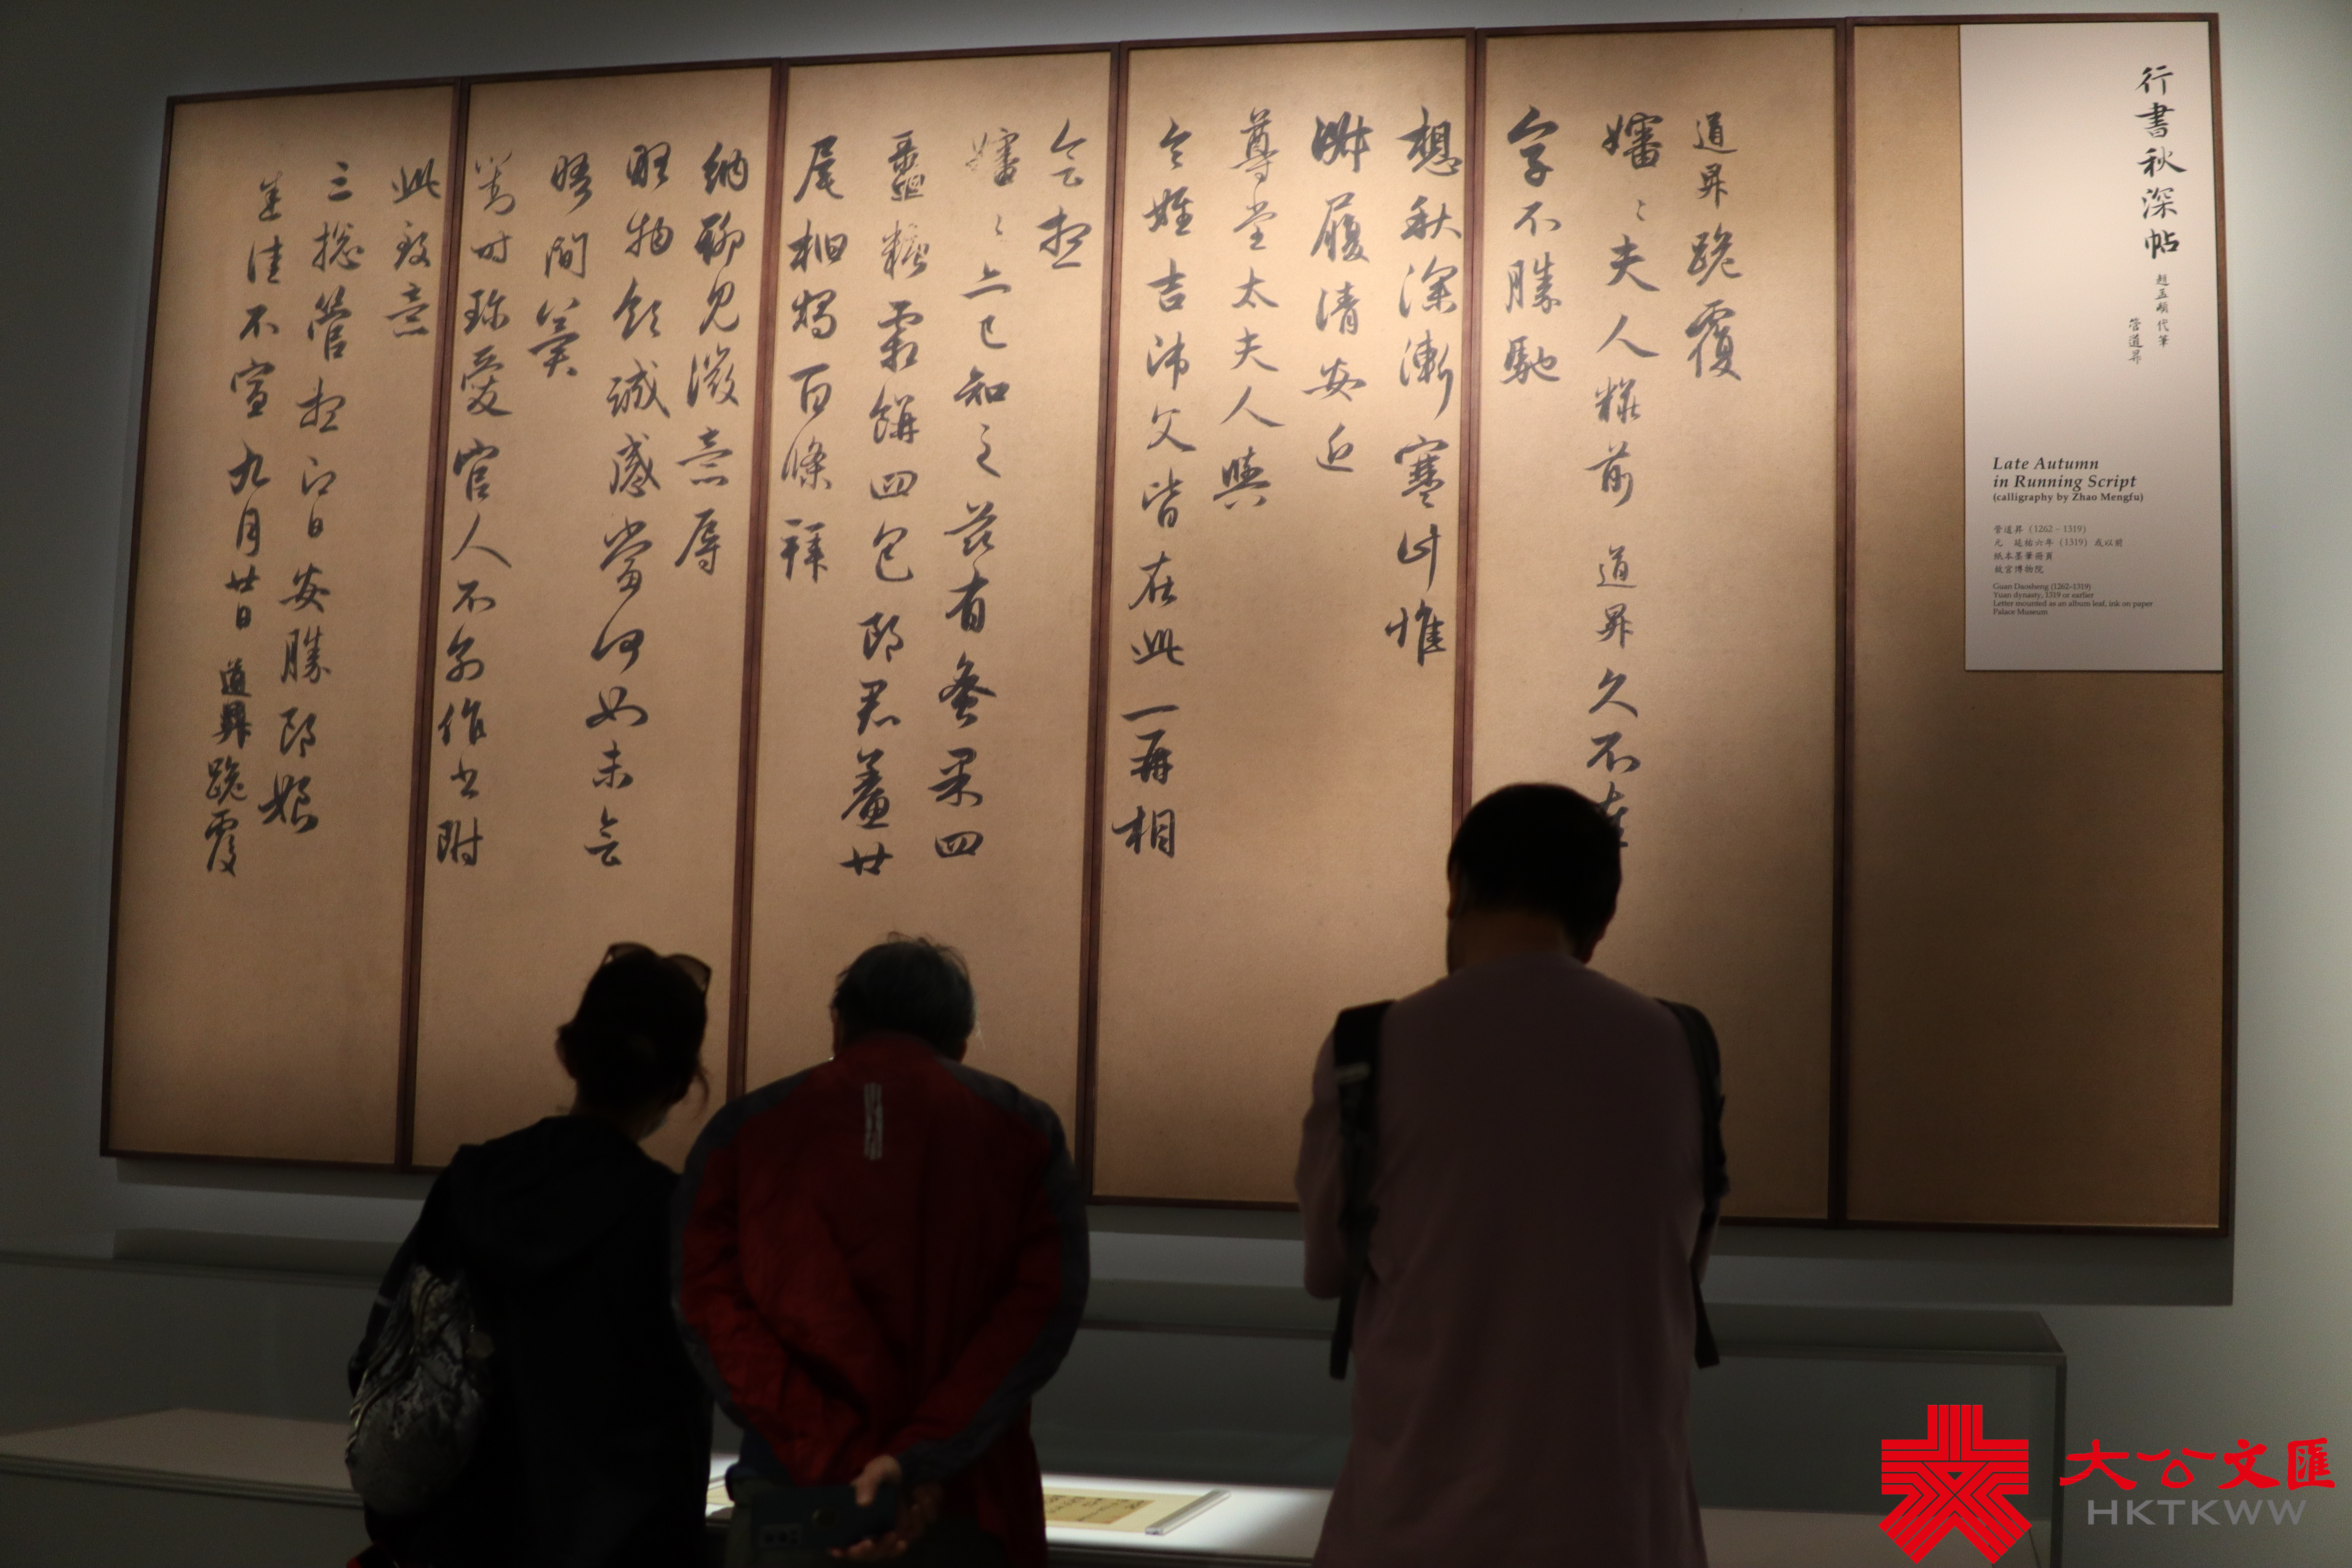 行書秋深帖
趙孟頫代筆
管道昇
Late Autumn
in Running Script
(calligraphy by Zhao Mengfu)
管道昇（1262－1319）
元 延祐六年（1319）或以前
紙本墨筆冊頁
故宮博物院
Guan Daosheng (1262–1319)
Yuan dynasty, 1319 or earlier
Letter mounted as an album leaf, ink on paper
Palace Museum
道昇跪覆
嬸〻夫人粧前道昇久不在
字不勝馳
想秋深漸寒此惟
淋履清安近
尊堂太夫人與
令姪吉沛父皆在此一再相
會想
嬸〻亦已知之茲有蚤果四
盝糖霜餅四包郎君鯗廿
尾桕燭百條拜
納聊見微意辱
眡物領誠感當何如未會
晤間冀
對時珍愛官人不別作書附
此致意
三總管想即日安勝郎娘
悉佳不宣九月廿日道昇跪覆
大公文匯
HKTKWW